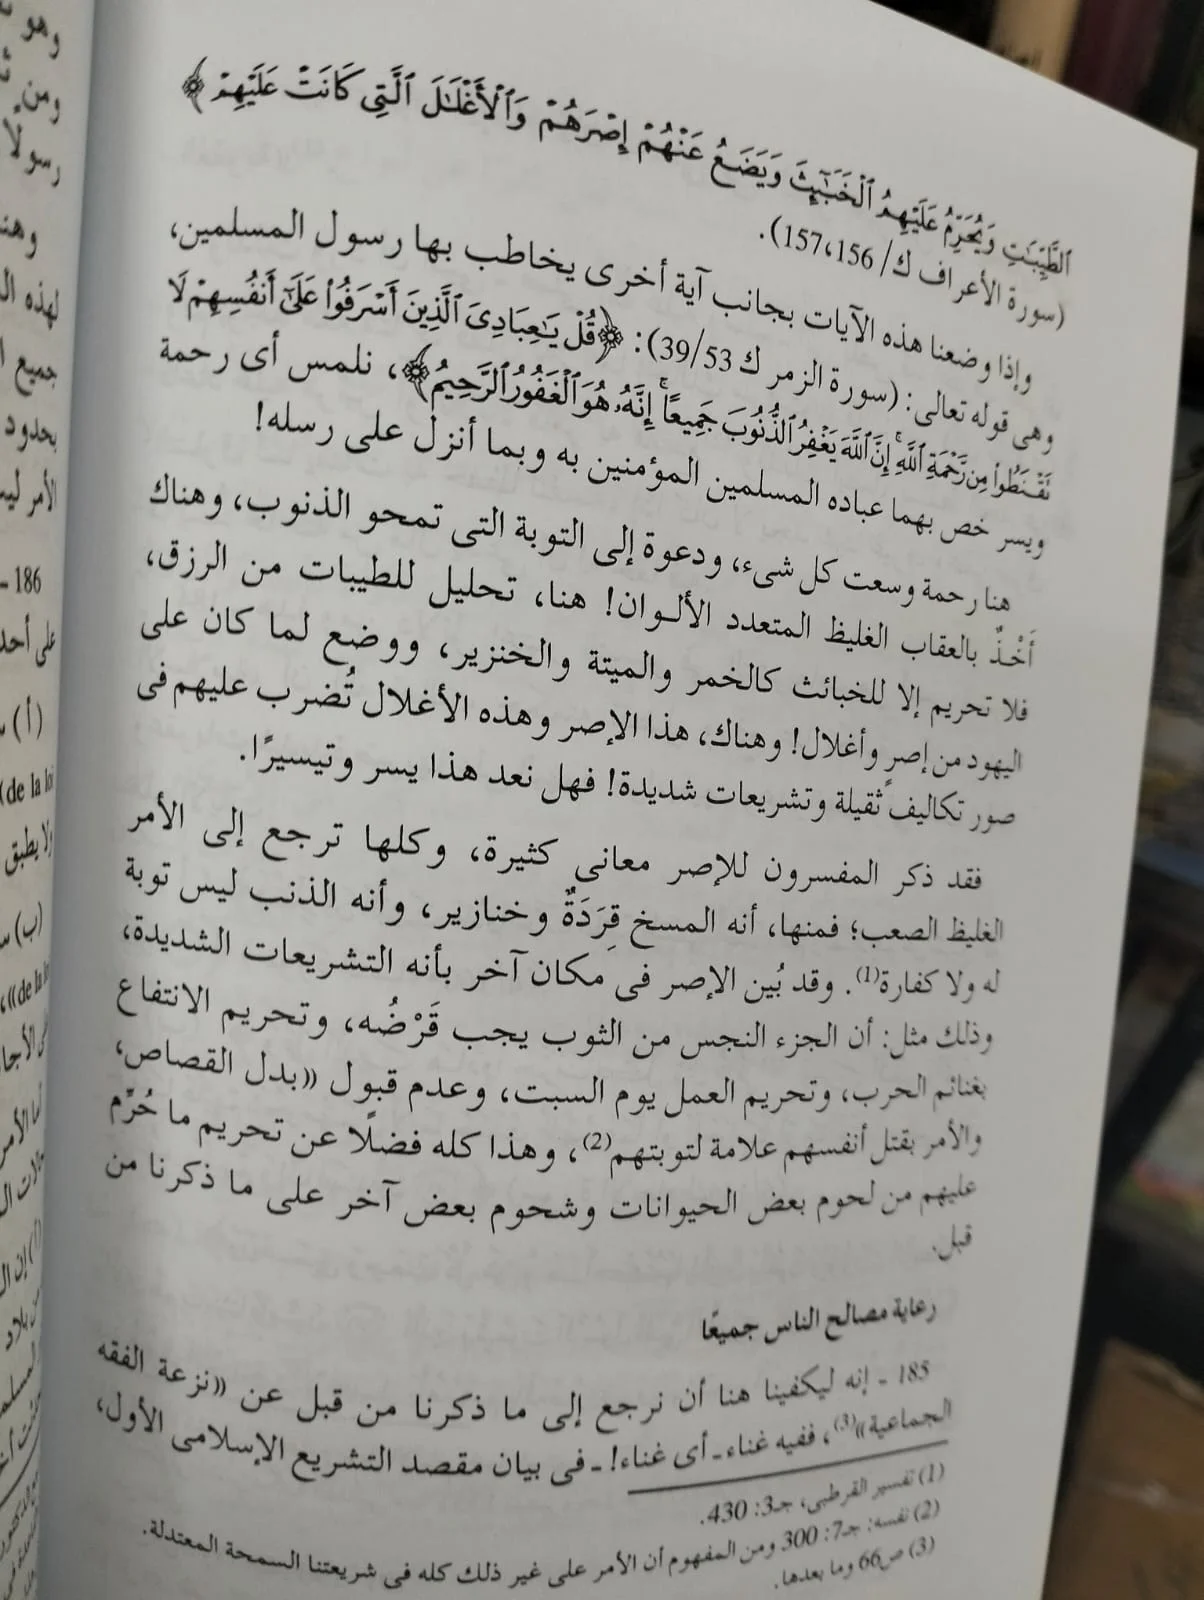 ٱلطَّيِّبَٰتِ وَيُحَرِّمُ عَلَيْهِمُ ٱلْخَبَٰٓئِثَ وَيَضَعُ عَنْهُمْ إِصْرَهُمْ وَٱلْأَغْلَٰلَ ٱلَّتِى كَانَتْ عَلَيْهِمْ﴾
(سورة الأعراف ك/ 157،156).
وإذا وضعنا هذه الآيات بجانب آية أخرى يخاطب بها رسول المسلمين،
وهى قوله تعالى: (سورة الزمر ك 39/53): ﴿قُلْ يَٰعِبَادِىَ ٱلَّذِينَ أَسْرَفُوا۟ عَلَىٰٓ أَنفُسِهِمْ لَا
تَقْنَطُوا۟ مِن رَّحْمَةِ ٱللَّهِ إِنَّ ٱللَّهَ يَغْفِرُ ٱلذُّنُوبَ جَمِيعًا إِنَّهُۥ هُوَ ٱلْغَفُورُ ٱلرَّحِيمُ﴾، نلمس أى رحمة
ويسر خص بهما عباده المسلمين المؤمنين به وبما أنزل على رسله!
هنا رحمة وسعت كل شىء، ودعوة إلى التوبة التى تمحو الذنوب، وهناك
أَخْذٌ بالعقاب الغليظ المتعدد الألوان! هنا، تحليل للطيبات من الرزق،
فلا تحريم إلا للخبائث كالخمر والميتة والخنزير، ووضع لما كان على
اليهود من إصرٍ وأغلال! وهناك، هذا الإصر وهذه الأغلال تُضرب عليهم فى
صور تكاليف ثقيلة وتشريعات شديدة! فهل نعد هذا يسر وتيسيرًا.
فقد ذكر المفسرون للإصر معانى كثيرة، وكلها ترجع إلى الأمر
الغليظ الصعب؛ فمنها، أنه المسخ قِرَدَةٌ وخنازير، وأنه الذنب ليس توبة
له ولا كفارة(1). وقد بُين الإصر فى مكان آخر بأنه التشريعات الشديدة،
وذلك مثل: أن الجزء النجس من الثوب يجب قَرْضُه، وتحريم الانتفاع
بغنائم الحرب، وتحريم العمل يوم السبت، وعدم قبول «بدل القصاص،
والأمر بقتل أنفسهم علامة لتوبتهم(2)، وهذا كله فضلًا عن تحريم ما حُرِّم
عليهم من لحوم بعض الحيوانات وشحوم بعض آخر على ما ذكرنا من
قبل.
رعاية مصالح الناس جميعًا
185 - إنه ليكفينا هنا أن نرجع إلى ما ذكرنا من قبل عن «نزعة الفقه
الجماعية»(3)، ففيه غناء ـ أى غناء! ـ فى بيان مقصد التشريع الإسلامى الأول،
(1) تفسير القرطبى، جـ3: 430.
(2) نفسه: جـ7: 300 ومن المفهوم أن الأمر على غير ذلك كله فى شريعتنا السمحة المعتدلة.
(3) ص66 وما بعدها.
وهو
ومن
رسولًا
لهذه
جميع
بحدود
186 -
على أحد
(أ)
de la loi
ولا يطبق
(ب)
de la loi»،